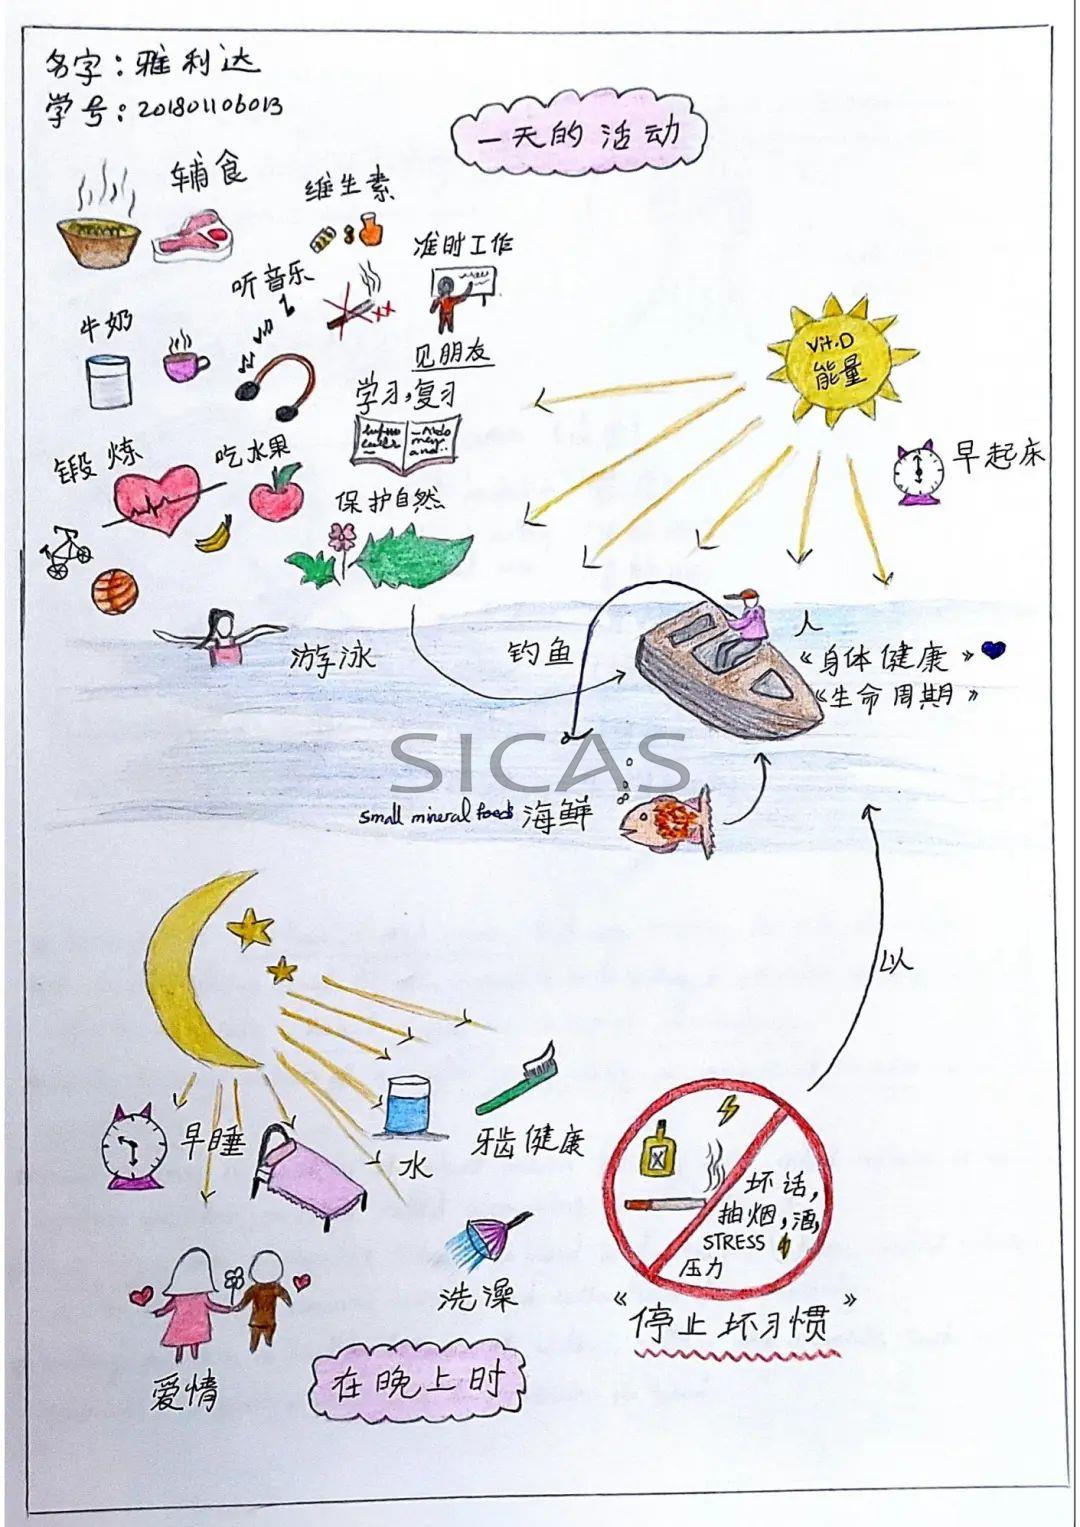 名字：雅利达
学号：201801106013
一天的活动
辅食
维生素
准时工作
听音乐
牛奶
见朋友
学习，复习
Vit.D
能量
早起床
锻炼
吃水果
保护自然
游泳
钓鱼
人
《身体健康》
《生命周期》
SICAS
small mineral foods 海鲜
以
早睡
水
牙齿健康
坏话，
抽烟，酒，
STRESS
压力
洗澡
《停止坏习惯》
爱情
在晚上时